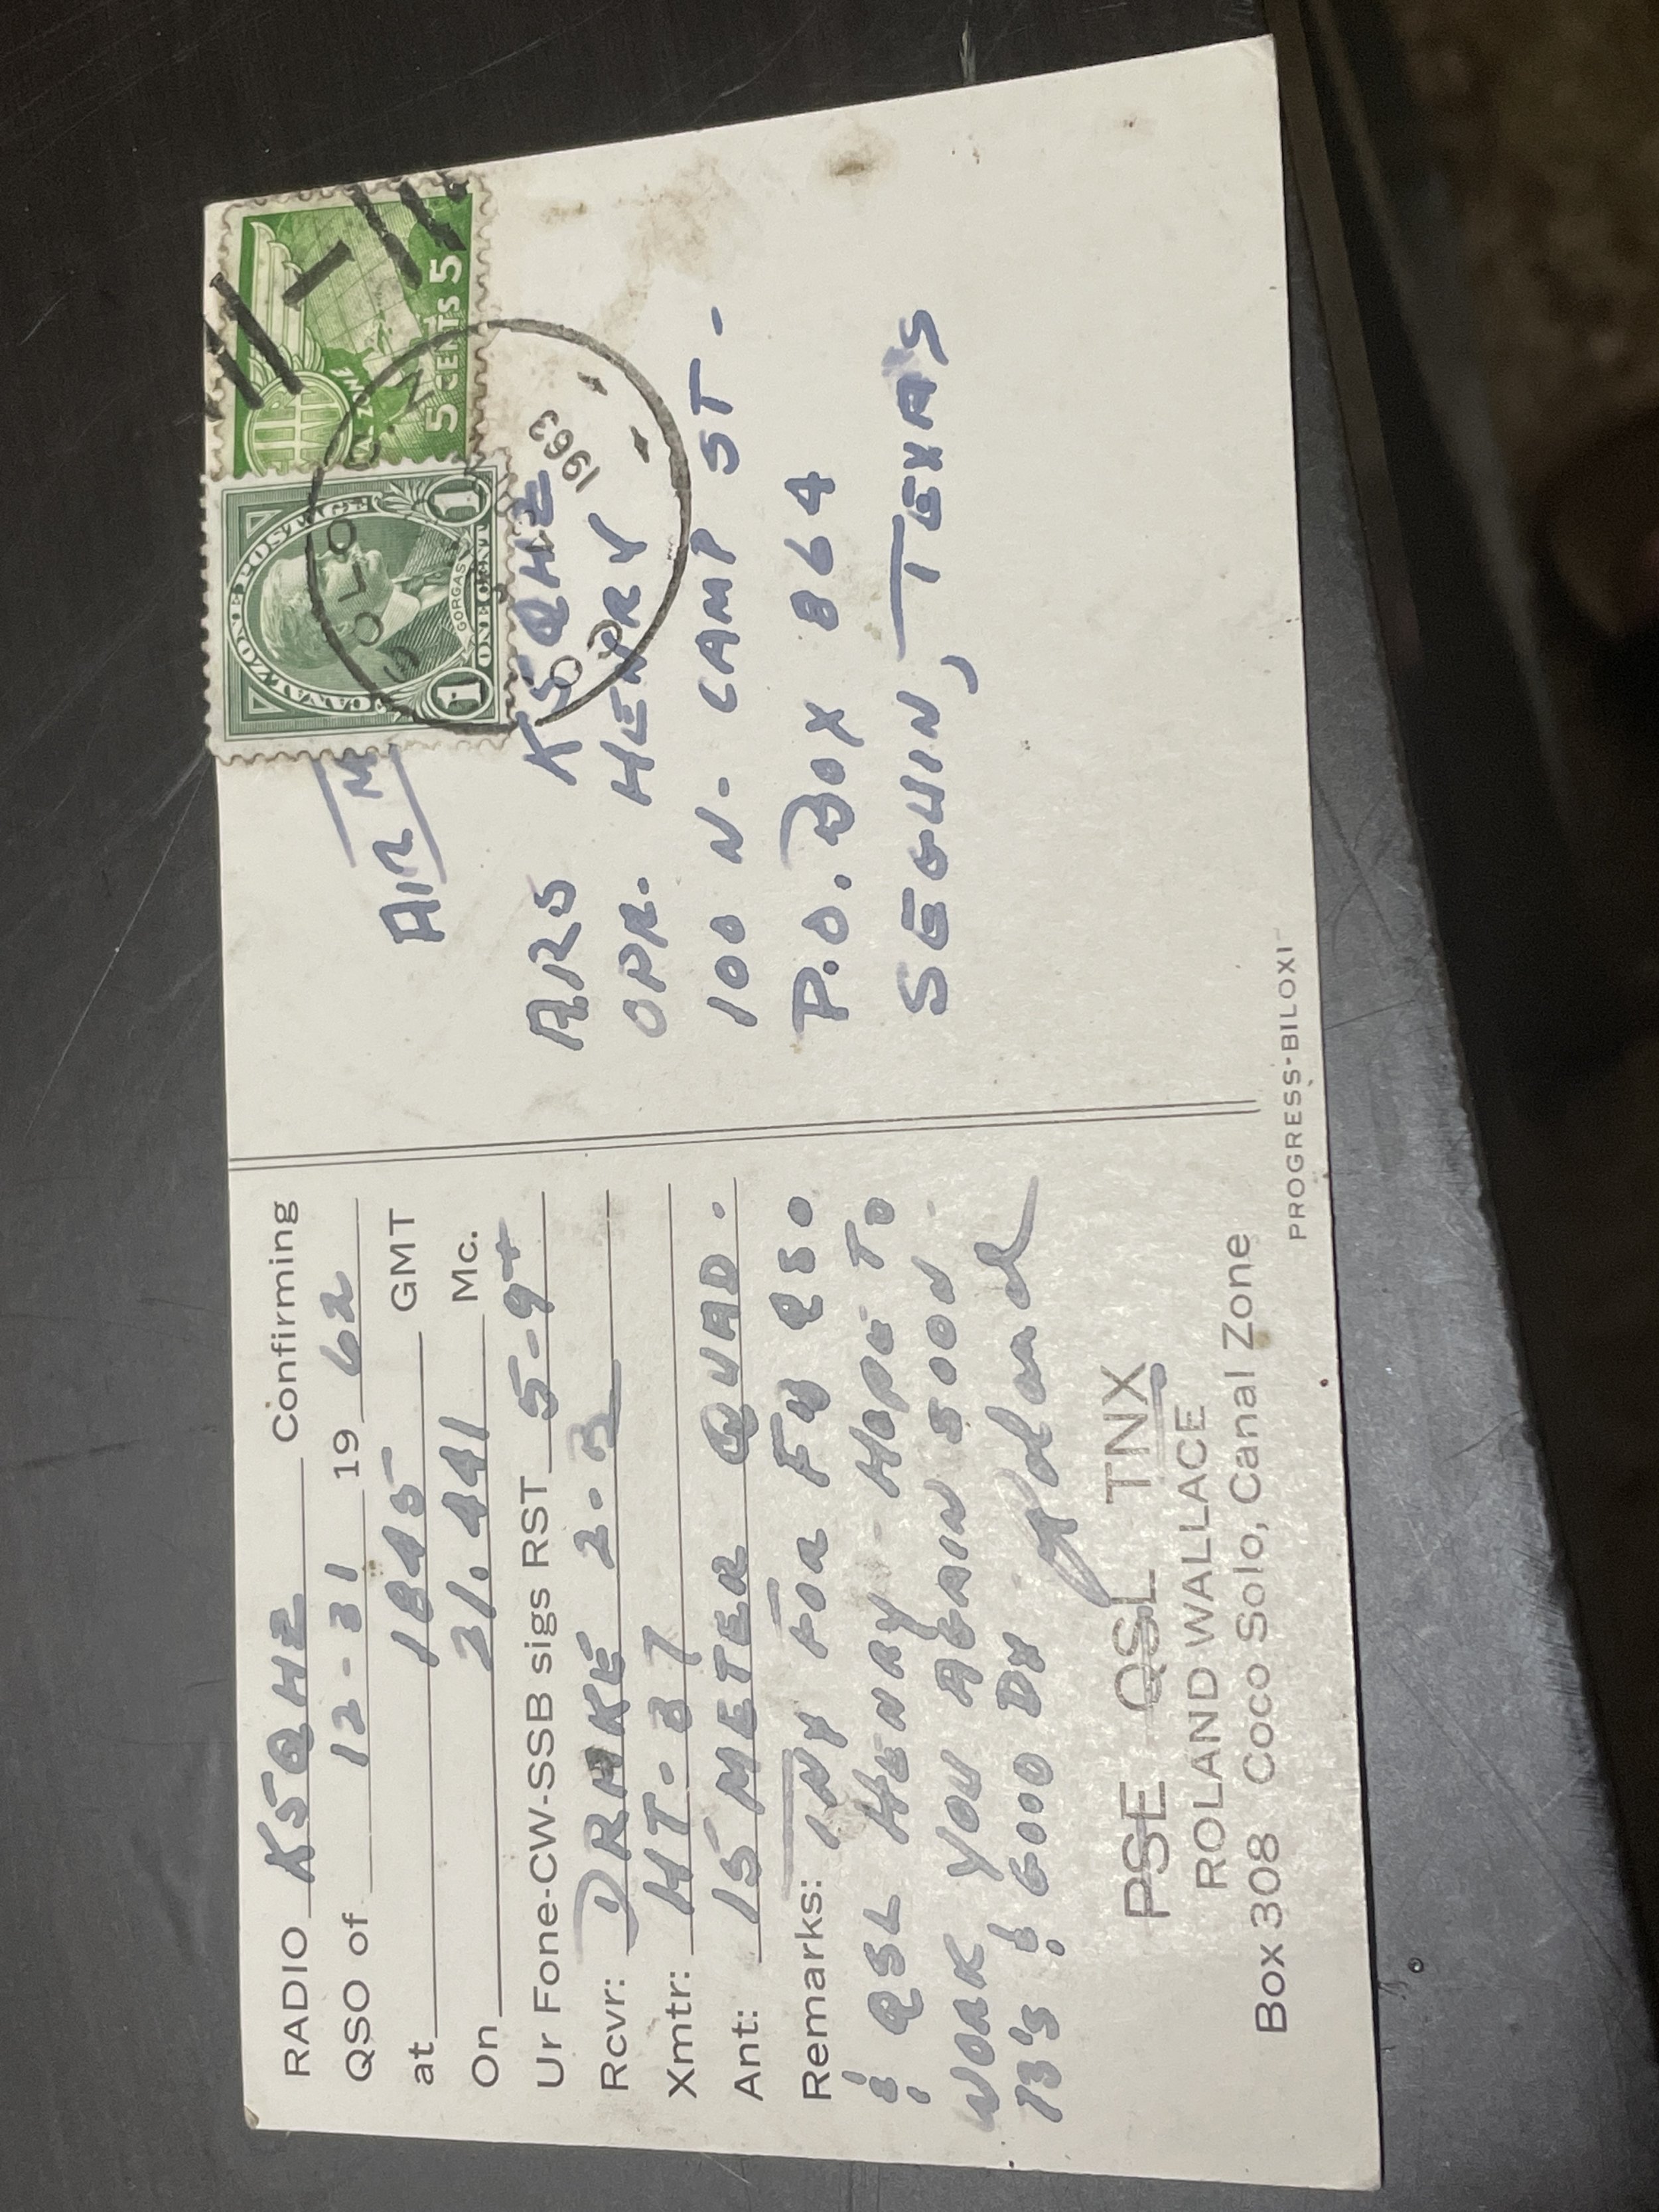 RADIO K5QHZ Confirming
QSO of 12-31 1962
at 1845 GMT
On 21.441 Mc.
Ur Fone-CW-SSB sigs RST 5-9+
Rcvr: DRAKE 2-B
Xmtr: HT-37
Ant: 15 METER QUAD.
Remarks: TNX FOR FB QSO
& QSL HENRY - HOPE TO
WORK YOU AGAIN SOON -
73'S & GOOD DX Roland
PSE QSL TNX
ROLAND WALLACE
Box 308 Coco Solo, Canal Zone
PROGRESS-BILOXI
AIR M
CANAL ZONE POSTAGE
GORGAS
1 ONE CENT 1
5 CENTS 5
COCO SOLO
C. Z.
1963
ARS K5QHZ
OPR. HENRY
100 N. CAMP ST.
P.O. BOX 864
SEGUIN, TEXAS